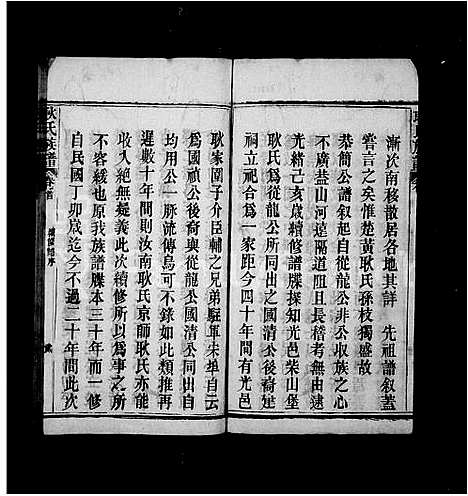 漸次南移散居各地其詳　先祖譜叙蓋
嘗言之矣惟楚黄耿氏孫枝獨盛故
恭簡公譜叙起自從龍公非公収族之心
不廣益山河遠隔道阻且長稽考無由逮
光緒己亥歳續修譜牒探知光邑柴山堡
耿氏爲從龍公所同出之國清公後裔建
祠立祀合爲一家距今四十年間有光邑
耿家圍子介臣輔之兄弟駐軍宋埠自云
爲國禎公後裔奥從龍公國清公同出自
均用公一脈流傳烏可不錄如此類推再
遲數十年間則汝南耿氏京師耿氏亦能
收入絶無疑義此次續修所以爲事之所
不容緩也原我族譜牒本三十年而一修
自民國丁卯歳迄今不過二十年間此次
耿氏族譜
卷首